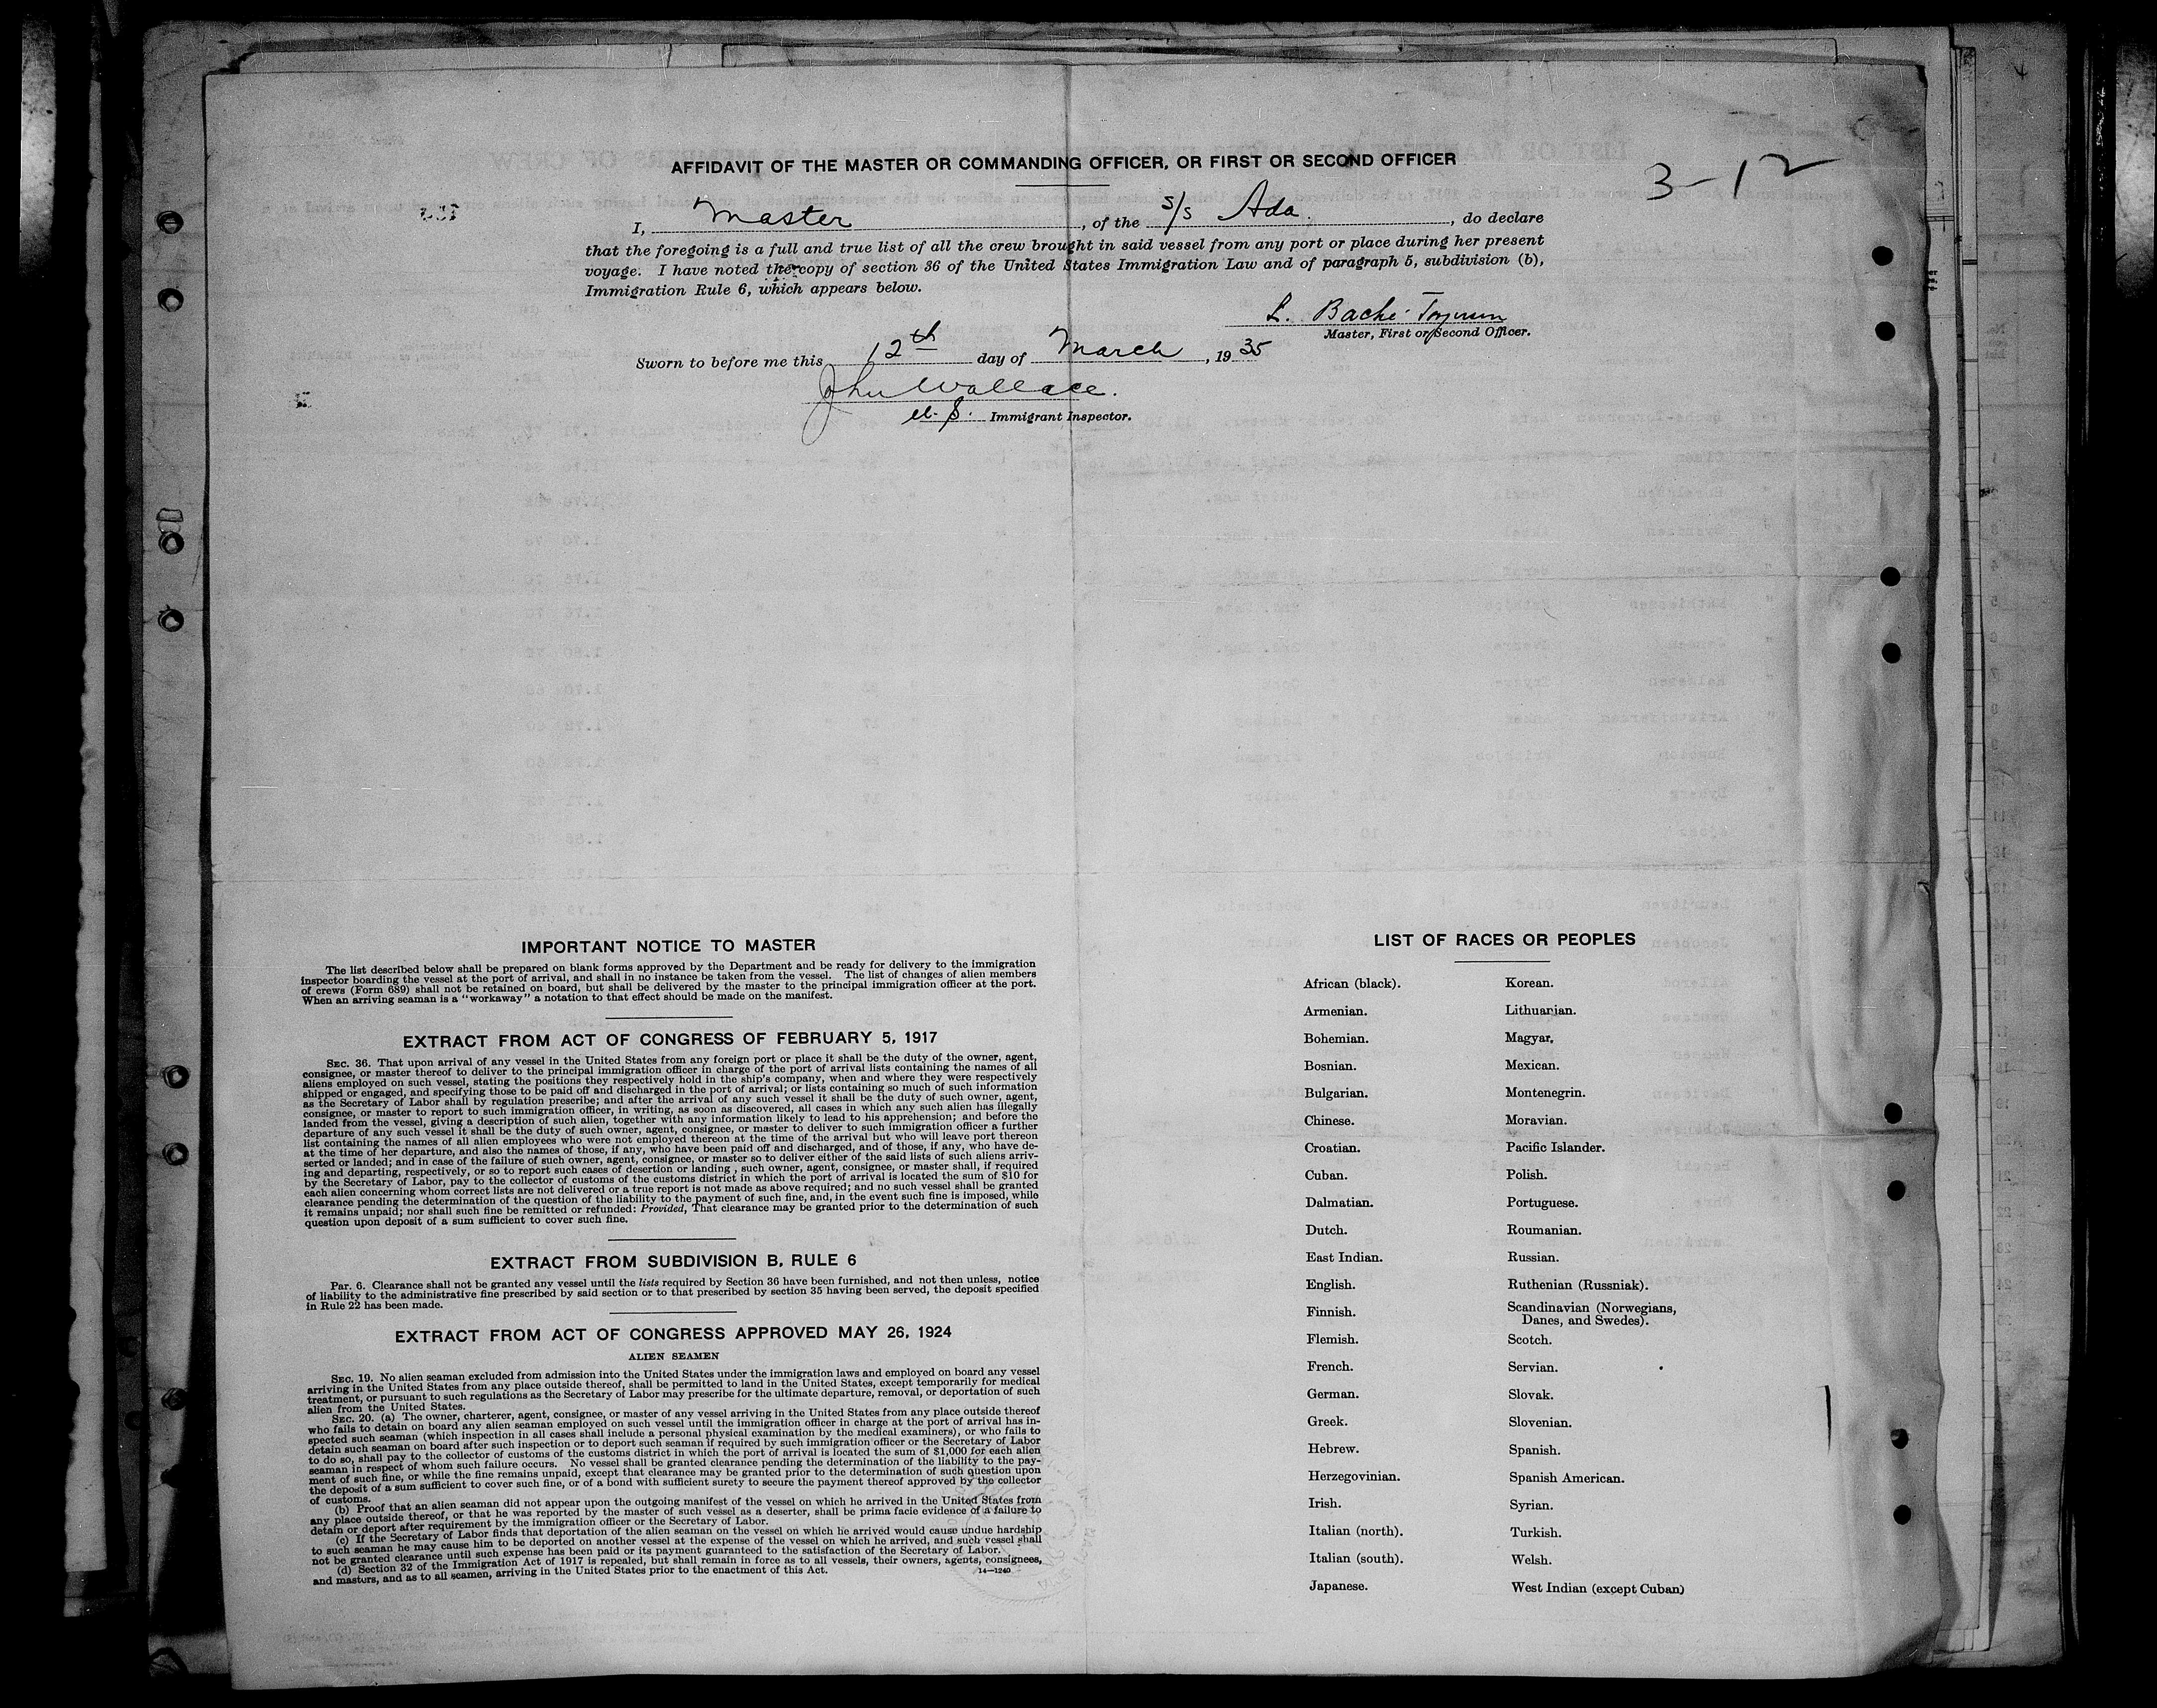 AFFIDAVIT OF THE MASTER OR COMMANDING OFFICER, OR FIRST OR SECOND OFFICER
3-12
I, Master, of the s/s Ada., do declare
that the foregoing is a full and true list of all the crew brought in said vessel from any port or place during her present
voyage. I have noted the copy of section 36 of the United States Immigration Law and of paragraph 5, subdivision (b),
Immigration Rule 6, which appears below.
L. Bache
Master, First or Second Officer.
Sworn to before me this 12th day of March, 1935
John Wallace.
U.S. Immigrant Inspector.
IMPORTANT NOTICE TO MASTER
The list described below shall be prepared on blank forms approved by the Department and be ready for delivery to the immigration
inspector boarding the vessel at the port of arrival, and shall in no instance be taken from the vessel. The list of changes of alien members
of crews (Form 689) shall not be retained on board, but shall be delivered by the master to the principal immigration officer at the port.
When an arriving seaman is a "workaway" a notation to that effect should be made on the manifest.
EXTRACT FROM ACT OF CONGRESS OF FEBRUARY 5, 1917
SEC. 36. That upon arrival of any vessel in the United States from any foreign port or place it shall be the duty of the owner, agent,
consignee, or master thereof to deliver to the principal immigration officer in charge of the port of arrival lists containing the names of all
aliens employed on such vessel, stating the positions they respectively hold in the ship's company, when and where they were respectively
shipped or engaged, and specifying those to be paid off and discharged in the port of arrival; or lists containing so much of such information
as the Secretary of Labor shall by regulation prescribe; and after the arrival of any such vessel it shall be the duty of such owner, agent,
consignee, or master to report to such immigration officer, in writing, as soon as discovered, all cases in which any such alien has illegally
landed from the vessel, giving a description of such alien, together with any information likely to lead to his apprehension; and before the
departure of any such vessel it shall be the duty of such owner, agent, consignee, or master to deliver to such immigration officer a further
list containing the names of all alien employees who were not employed thereon at the time of the arrival but who will leave port thereon
at the time of her departure, and also the names of those, if any, who have been paid off and discharged, and of those, if any, who have de-
serted or landed; and in case of the failure of such owner, agent, consignee, or master so to deliver either of the said lists of such aliens arriv-
ing and departing, respectively, or so to report such cases of desertion or landing , such owner, agent, consignee, or master shall, if required
by the Secretary of Labor, pay to the collector of customs of the customs district in which the port of arrival is located the sum of $10 for
each alien concerning whom correct lists are not delivered or a true report is not made as above required; and no such vessel shall be granted
clearance pending the determination of the question of the liability to the payment of such fine, and, in the event such fine is imposed, while
it remains unpaid; nor shall such fine be remitted or refunded: Provided, That clearance may be granted prior to the determination of such
question upon deposit of a sum sufficient to cover such fine.
EXTRACT FROM SUBDIVISION B, RULE 6
Par. 6. Clearance shall not be granted any vessel until the lists required by Section 36 have been furnished, and not then unless, notice
of liability to the administrative fine prescribed by said section or to that prescribed by section 35 having been served, the deposit specified
in Rule 22 has been made.
EXTRACT FROM ACT OF CONGRESS APPROVED MAY 26, 1924
ALIEN SEAMEN
SEC. 19. No alien seaman excluded from admission into the United States under the immigration laws and employed on board any vessel
arriving in the United States from any place outside thereof, shall be permitted to land in the United States, except temporarily for medical
treatment, or pursuant to such regulations as the Secretary of Labor may prescribe for the ultimate departure, removal, or deportation of such
alien from the United States.
SEC. 20. (a) The owner, charterer, agent, consignee, or master of any vessel arriving in the United States from any place outside thereof
who fails to detain on board any alien seaman employed on such vessel until the immigration officer in charge at the port of arrival has in-
spected such seaman (which inspection in all cases shall include a personal physical examination by the medical examiners), or who fails to
detain such seaman on board after such inspection or to deport such seaman if required by such immigration officer or the Secretary of Labor
to do so, shall pay to the collector of customs of the customs district in which the port of arrival is located the sum of $1,000 for each alien
seaman in respect of whom such failure occurs. No vessel shall be granted clearance pending the determination of the liability to the pay-
ment of such fine, or while the fine remains unpaid, except that clearance may be granted prior to the determination of such question upon
the deposit of a sum sufficient to cover such fine, or of a bond with sufficient surety to secure the payment thereof approved by the collector
of customs.
(b) Proof that an alien seaman did not appear upon the outgoing manifest of the vessel on which he arrived in the United States from
any place outside thereof, or that he was reported by the master of such vessel as a deserter, shall be prima facie evidence of a failure to
detain or deport after requirement by the immigration officer or the Secretary of Labor.
(c) If the Secretary of Labor finds that deportation of the alien seaman on the vessel on which he arrived would cause undue hardship
to such seaman he may cause him to be deported on another vessel at the expense of the vessel on which he arrived, and such vessel shall
not be granted clearance until such expense has been paid or its payment guaranteed to the satisfaction of the Secretary of Labor.
(d) Section 32 of the Immigration Act of 1917 is repealed, but shall remain in force as to all vessels, their owners, agents, consignees,
and masters, and as to all seamen, arriving in the United States prior to the enactment of this Act.
14—1240
LIST OF RACES OR PEOPLES
African (black).
Armenian.
Bohemian.
Bosnian.
Bulgarian.
Chinese.
Croatian.
Cuban.
Dalmatian.
Dutch.
East Indian.
English.
Finnish.
Flemish.
French.
German.
Greek.
Hebrew.
Herzegovinian.
Irish.
Italian (north).
Italian (south).
Japanese.
Korean.
Lithuanian.
Magyar.
Mexican.
Montenegrin.
Moravian.
Pacific Islander.
Polish.
Portuguese.
Roumanian.
Russian.
Ruthenian (Russniak).
Scandinavian (Norwegians,
Danes, and Swedes).
Scotch.
Servian.
Slovak.
Slovenian.
Spanish.
Spanish American.
Syrian.
Turkish.
Welsh.
West Indian (except Cuban)